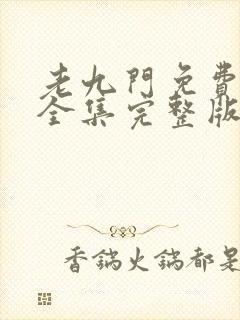 老九門免費
全集完整版
香鍋火鍋都是